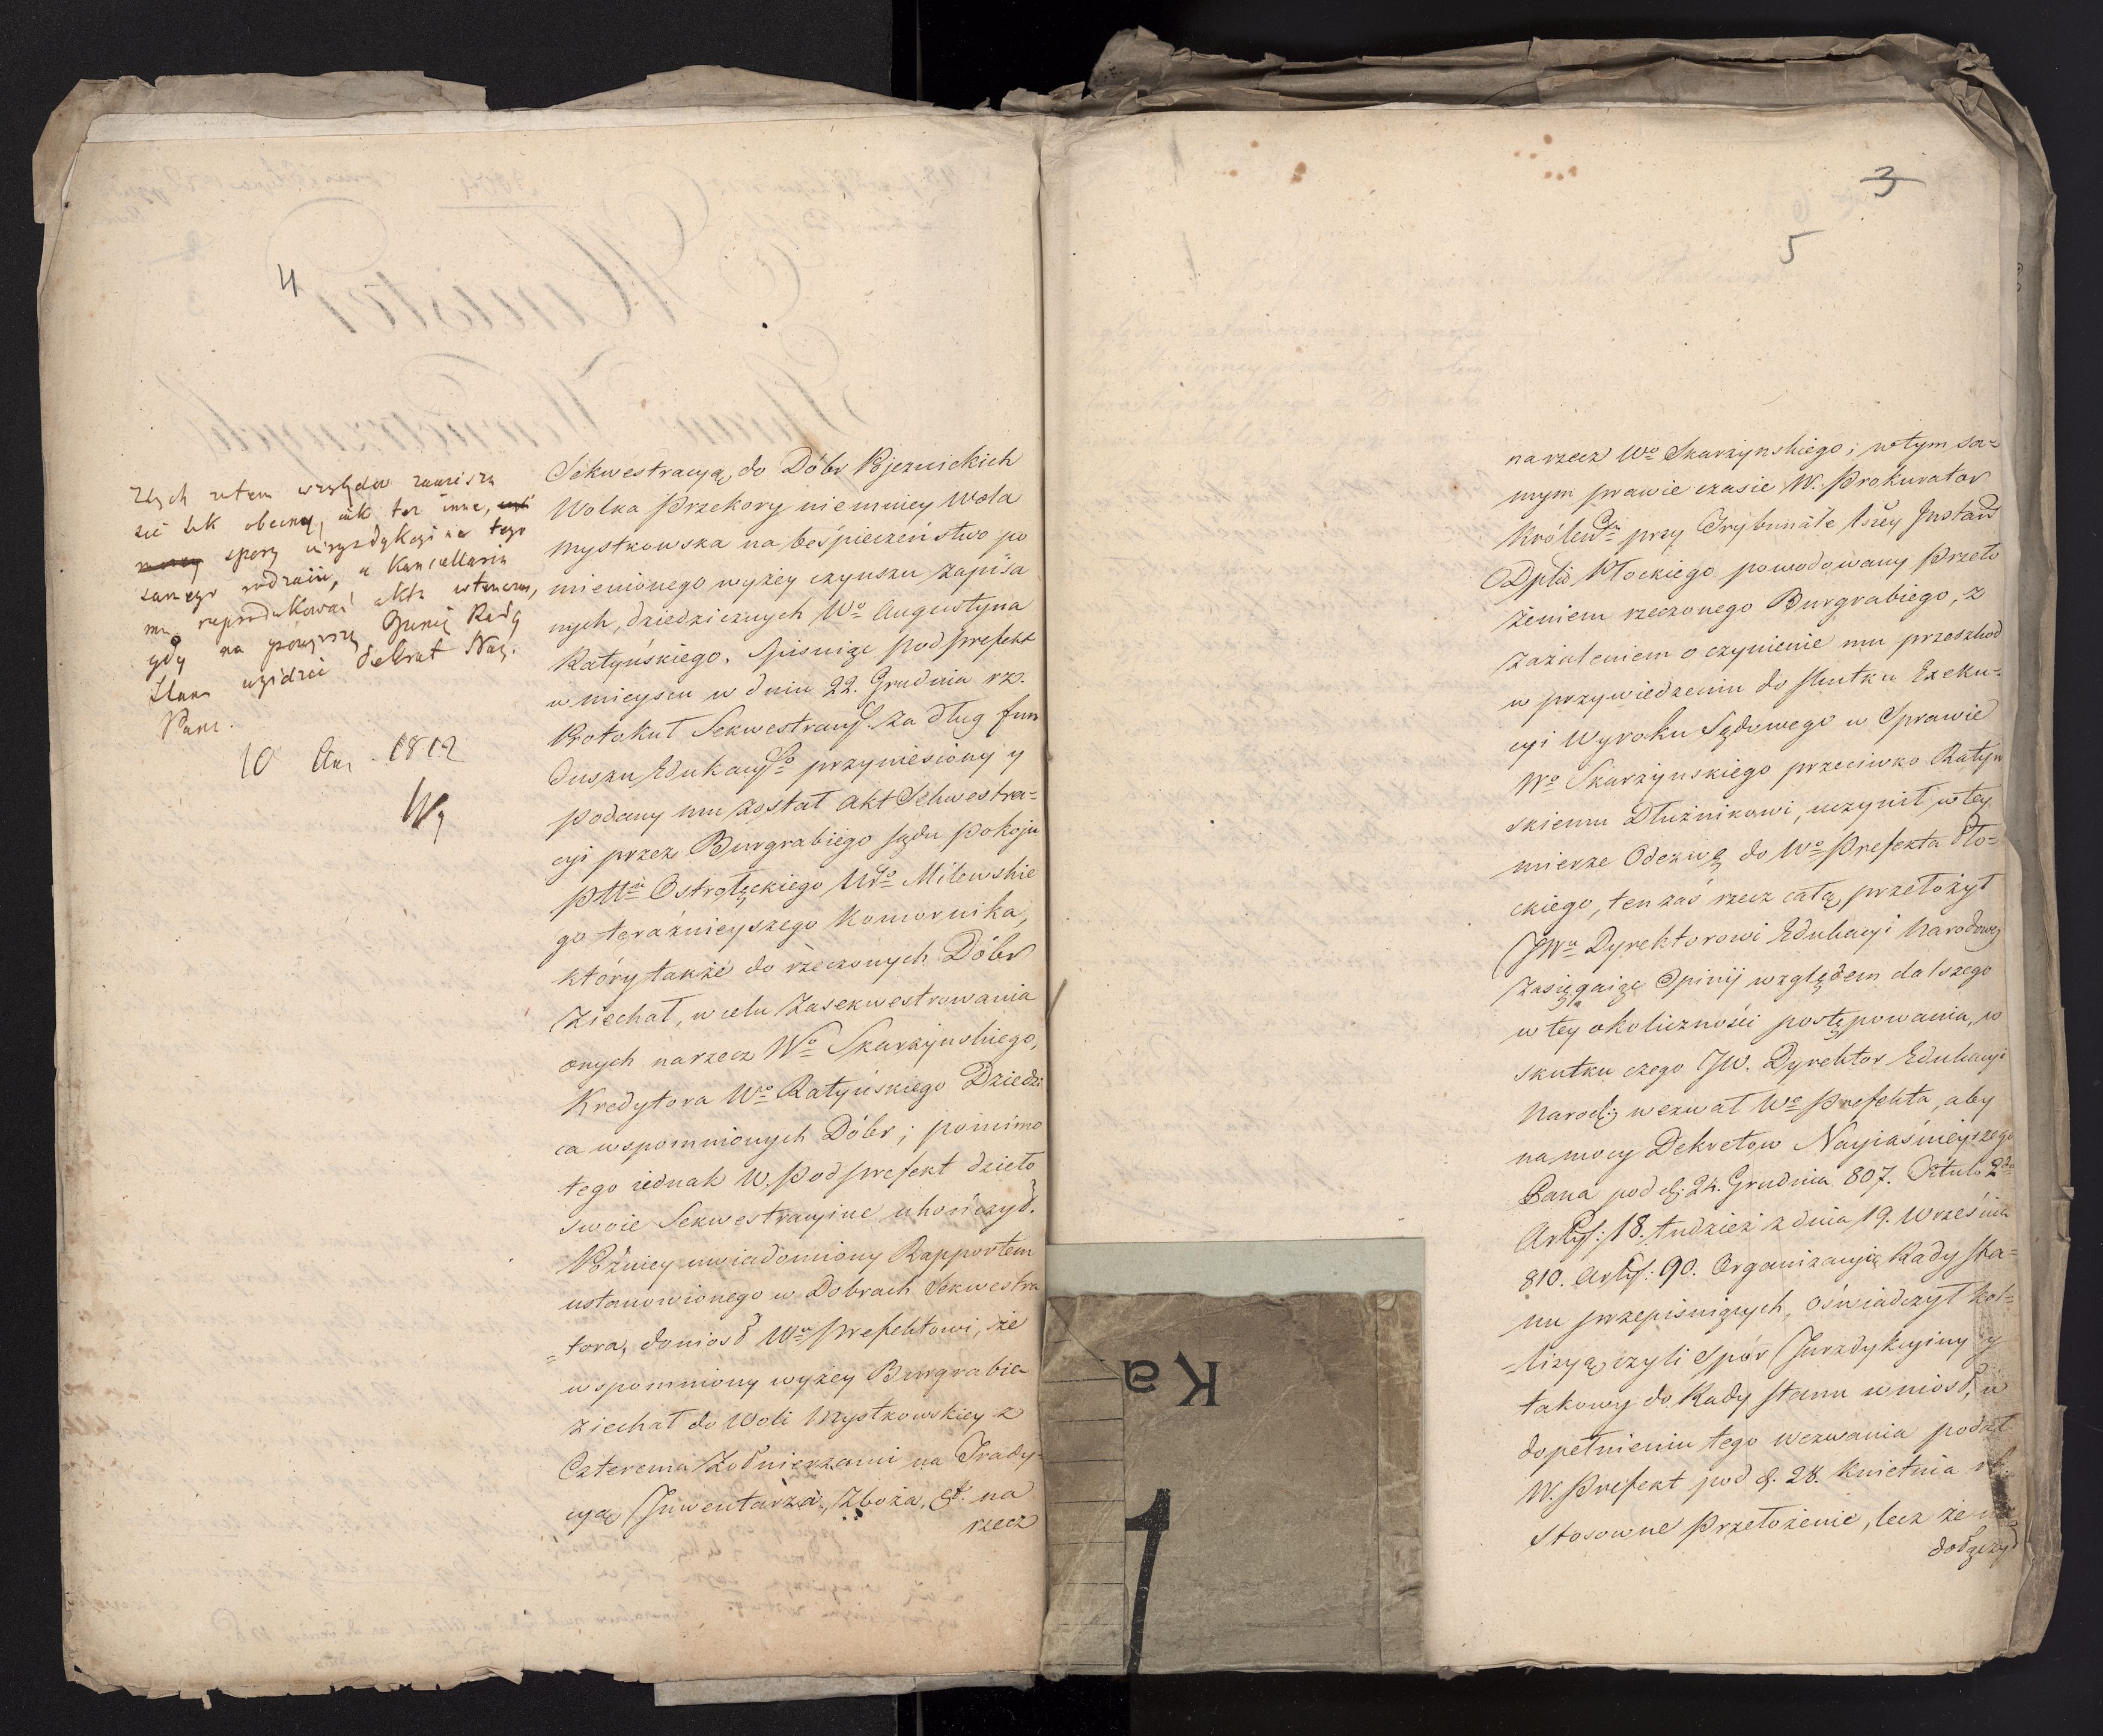 4
Z tych zatem względów zawiesza
się tak obecny, iak też inne,
spory iuryzdykcyine tego
samego rodzaiu, a Kancellaria
ma reprodukować akta wtenczas,
gdy na powyższą Opinię Rady
Stanu wyidzie Dekret Nay.
Pana.
10 Aug. 1812
Sekwestracyą, do Dóbr Rżeznickich
Wolka Przekory niemniey Wola
Mystkowska na beśpieczeństwo po
mienionego wyżey czynszu zapisa
nych, dziedzicznych Wo Augustyna
Ratyńskiego. Spisuiąc Podprefekt
w mieyscu w dniu 22. Grudnia rz.
Protokuł Sekwestracyi za dług fun
duszu Edukacygo przyniesiony y
podany mu został Akt Sekwestra=
cyi przez Burgrabiego Sądu Pokoju
Pttu Ostrołęckiego Urgo Milewskie
go teraźnieyszego Komornika,
który także do rzeczonych Dóbr
Ziechał, w celu Zasekwestrowania
onych na rzecz Wo Skarzynskiego,
Kredytora Wo Ratyńskiego Dziedzi
ca wspomnionych Dóbr; pomimo
tego iednak W. Podprefekt dzieło
swoie Sekwestracyine ukończył.
Późniey uwiadomiony Rapportem
ustanowionego w Dobrach Sekwestra
=tora, doniosł Wu Prefektowi, że
wspomniony wyżey Burgrabia
Ziechał do Woli Mystkowskiey z
Czterema Żołnierzami na Trady=
cyą Inwentarza, Zboża, et. na
rzecz
3
5
na rzecz Wo Skarzynskiego; w tym sa=
mym prawie czasie W. Prokurator
Królewski przy Trybunale 1szey Instan
Dptu Płockiego powodowany Przeło
żeniem rzeczonego Burgrabiego, z
zażaleniem o czynienie mu przeszkod
w przywiedzeniu do skutku Exeku=
cyi Wyroku Sądowego w Sprawie
Wo Skarżynskiego przeciwko Ratyn
skiemu Dłużnikowi, uczynił w tey
mierze Odezwę do Wo Prefekta Pło=
ckiego, ten zaś rzecz całą przełożył
JWu Dyrektorowi Edukacyi Narodowey
Zasięgaiąc Opinij względem dalszego
w tey okoliczności postępowania, w
skutku czego JW. Dyrektor Edukacyi
Narod: wezwał Wo Prefekta, aby
na mocy Dekretow Nayiaśnieyszego
Pana pod d. 24. Grudnia 807. Titulo 2do
Artyk: 18. tudzież z dnia 19. Września
810. Artyk: 90. Organizacyią Rady Sta=
nu przepisuiących, oświadczył kol=
=lizyą czyli Spór Jurzdykcyiny y
takowy do Rady Stanu wniosł, w
dopełnieniu tego wezwania podał
W. Prefekt pod d. 28. Kwietnia rb.
Stosowne Przełożenie, lecz że nie
dołączył
Ka
1